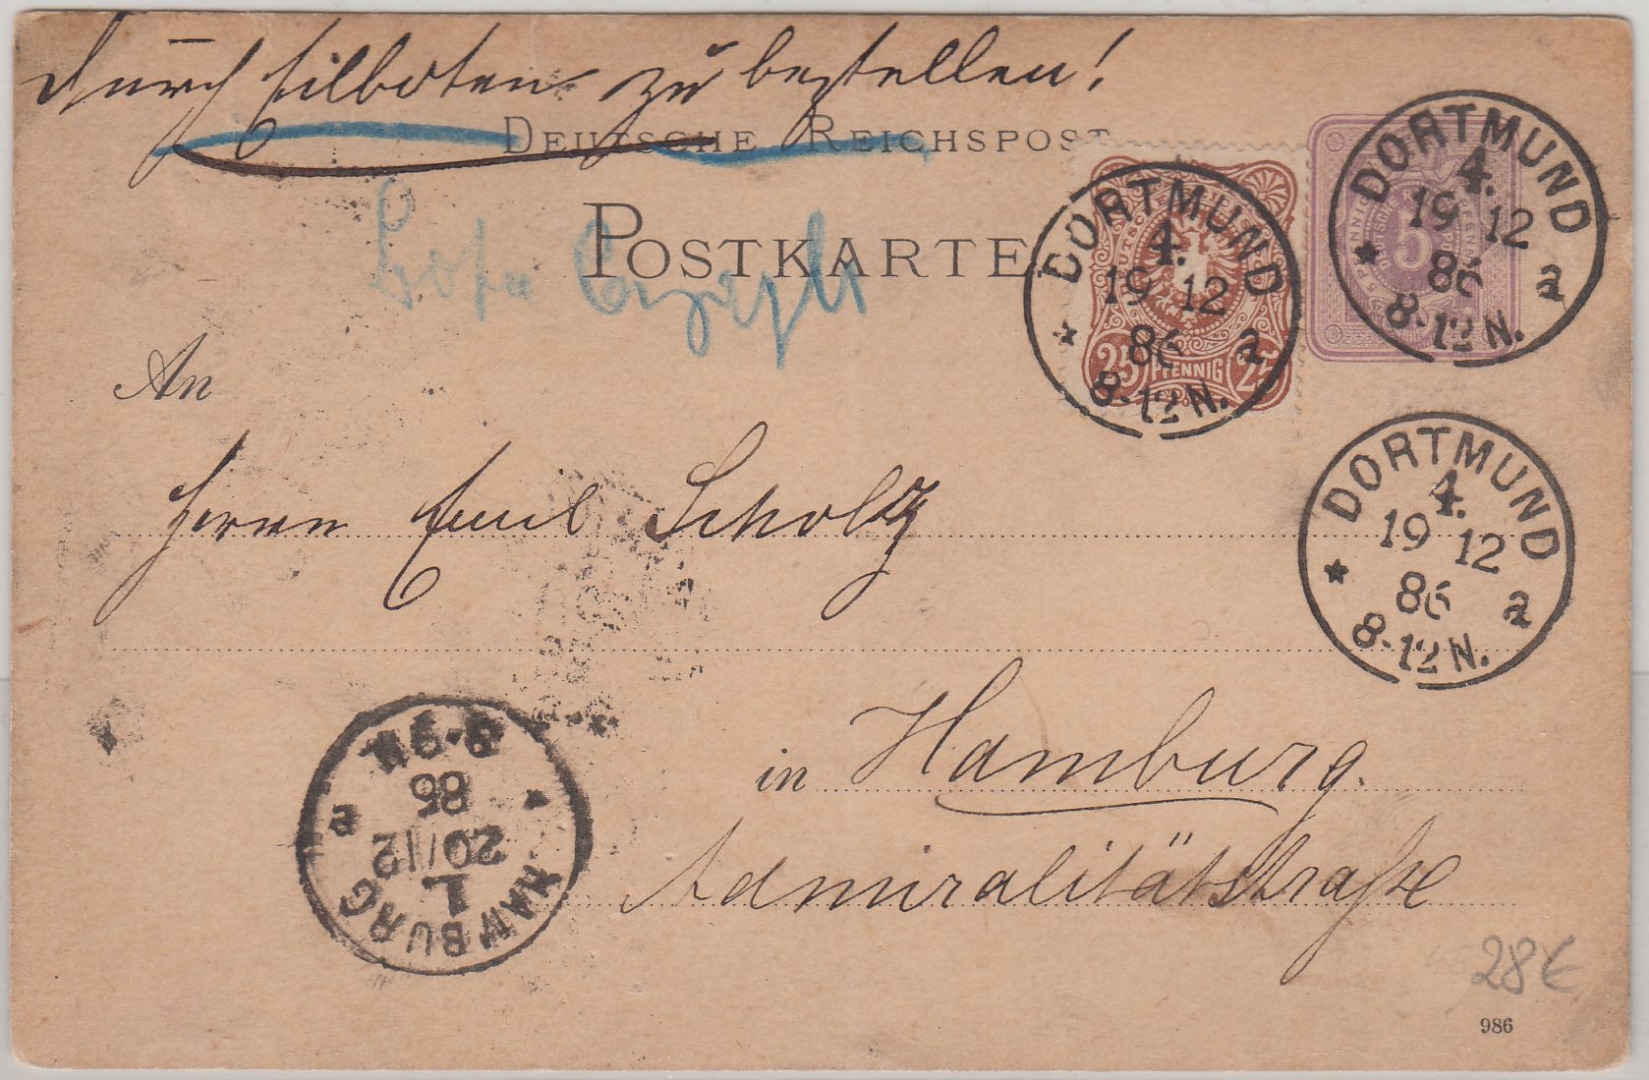 Durch Eilboten zu bestellen!
DEUTSCHE REICHSPOST
POSTKARTE
25 PFENNIG 25
5
DORTMUND
4.
19 12
86
8-12 N.
a
DORTMUND
4.
19 12
86
8-12 N.
a
DORTMUND
4.
19 12
86
8-12 N.
a
An
Herrn Emil Scholz
in Hamburg.
Admiralitätstraße
HAMBURG
1.
20/12
86
8-9
e
28€
986